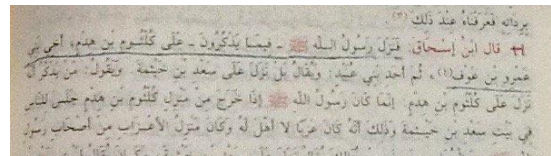 بردائه فعرفناه عند ذلك (٣)
قال ابن إسحاق: فنزل رسول الله ﷺ - فيما يذكرون - على كلثوم بن هدم، أخي بني
عمرو بن عوف(٤)، ثم أحد بني عبيد: ويقال بل نزل على سعد بن خيثمة. ويقول: من يذكر أن
نزل على كلثوم بن هدم إنما كان رسول الله ﷺ إذا خرج من منزل كلثوم بن هدم جلس للناس
في بيت سعد بن خيثمة وذلك أنه كان عزبا لا أهل له وكان منزل الأعزاب من أصحاب رسول